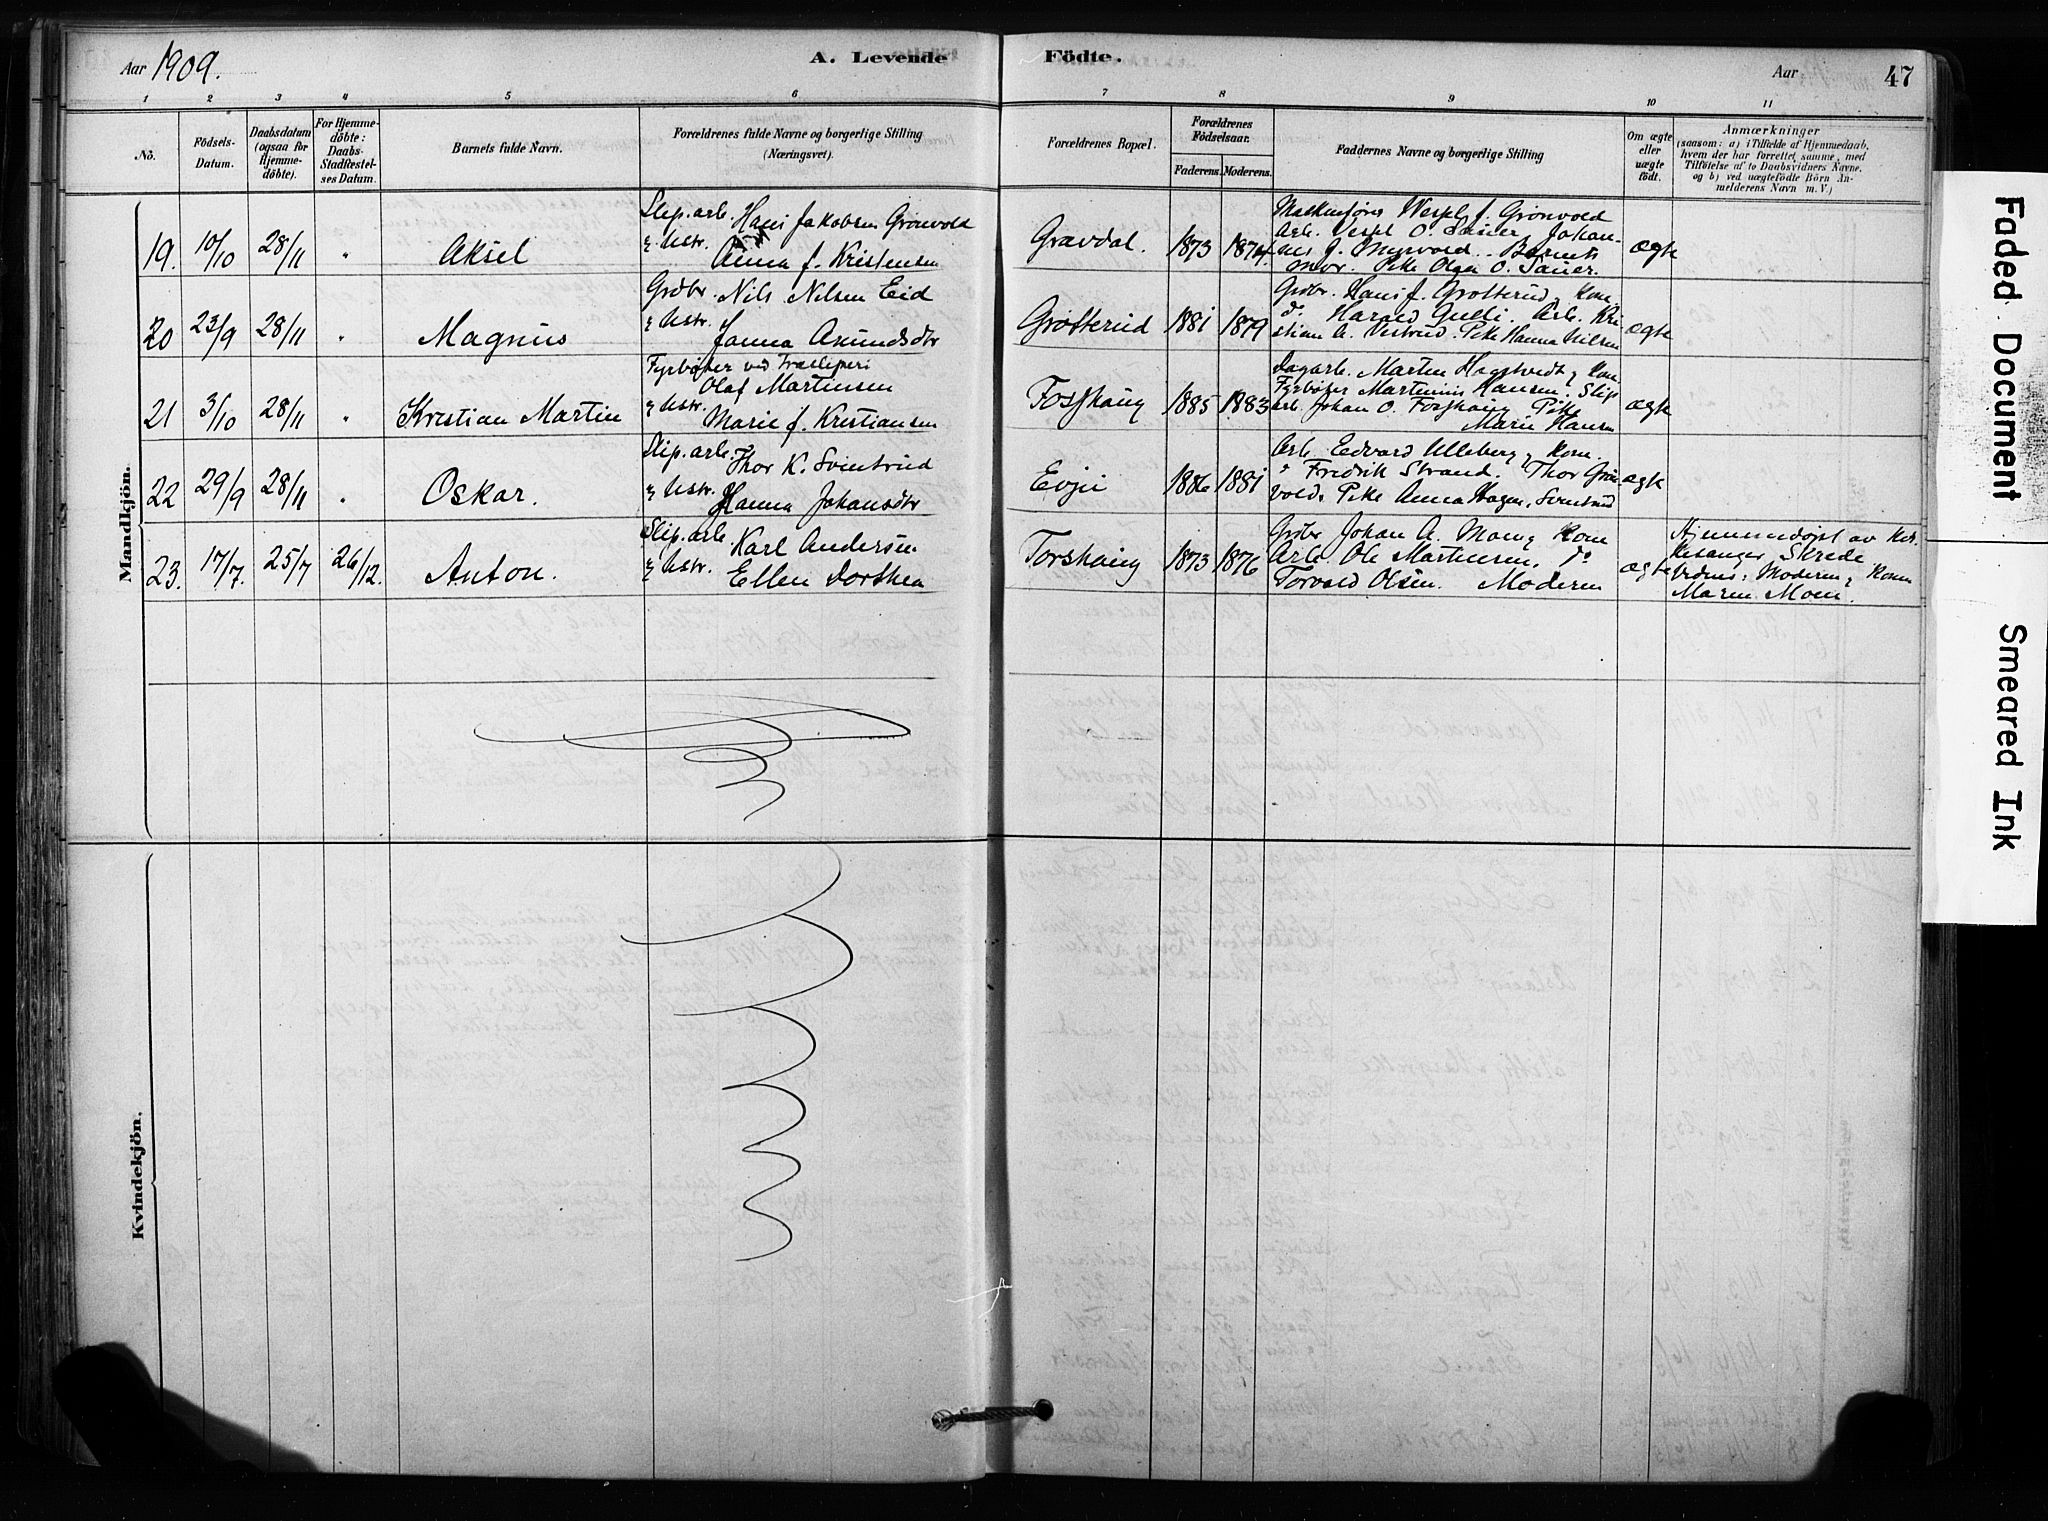 Aar 1909.
A. Levende Födte.
Aar
47
1 2 3 4 5 6 7 8 9 10 11
No.
Födsels-Datum.
Daabsdatum (ogsaa for Hjemme-döbte).
For Hjemme-döbte: Daabs-Stadfæstel-ses Datum.
Barnets fulde Navn.
Forældrenes fulde Navne og borgerlige Stilling
(Næringsvei).
Forældrenes Bopæl.
Forældrenes Födselsaar.
Faderens. Moderens.
Faddernes Navne og borgerlige Stilling
Om ægte eller uægte födt.
Anmærkninger
(saasom: a) i Tilfælde af Hjemmedaab,
hvem der har forrettet samme, med
Tilföielse af to Daabsvidners Navne,
og b) ved uægtefödte Börn An-
melderens Navn m. V.)
Mandkjön.
19. 10/10 28/11 " Aksel
Slip.arb. Hans Jakobsen Grönvold
& Hstr. Anna J. Kristensen
Gravdal. 1873 1874
J. Grönvold
Arb.
Pike Olga O.
ægte
20 23/9 28/11 " Magnus
Grdbr. Nils Nilsen Eid
& Hstr. Janna Amundsdtr
Grötterud 1881 1879
Grdbr. Hans J. Grötterud & Kone
do Harald Gulli. Arb. Kri-
stian A. Pike Hanna Nilsen
ægte
21 3/10 28/11 " Kristian Martin
Fyrböter ved Træsliperi
Olaf Martinsen
& Hstr. Marie J. Kristiansen
Fosshaug 1885 1883
Dagarb. Martin & Kone
Fyrböter Martinius Hansen, Slip
arb. Johan O. Fosshaug Pike
Marie Hansen
ægte
22 29/9 28/11 " Oskar.
Slip.arb. Thor K. Svintrud
& Hstr. Hanna Johansdtr
Evju 1886 1881
Arb. Edvard Ulleberg & Kone.
" Fredrik Strand. Thor Grön-
vold. Pike Anna Hagen, Svintrud
ægte
23. 17/7. 25/7 26/12. Anton.
Slip.arb. Karl Andersen
& Hstr. Ellen Dorthea
Torshaug 1873 1876
Grdbr Johan A. Moen & Kone
Arb. Ole Martinsen. Do
Torvald Olsen. Moderen
ægte
Hjemmedöpt av
Skrede
Vidner: Moderen & Kone
Maren Moen.
Kvindekjön.
Faded Document
Smeared Ink